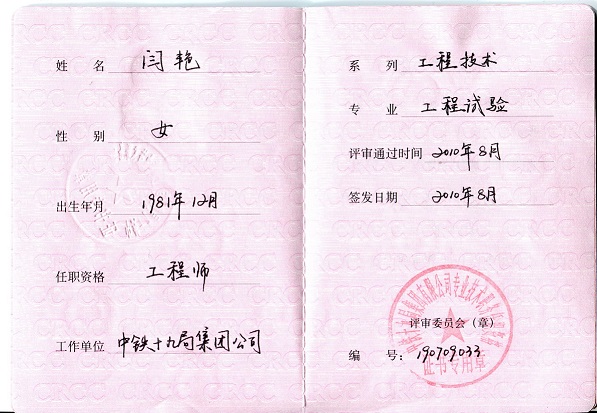 姓 名 闫艳
性 别 女
出生年月 1981年12月
任职资格 工程师
工作单位 中铁十九局集团公司
系 列 工程技术
专 业 工程试验
评审通过时间 2010年8月
签发日期 2010年8月
评审委员会（章）
编 号： 190709033
证书专用章